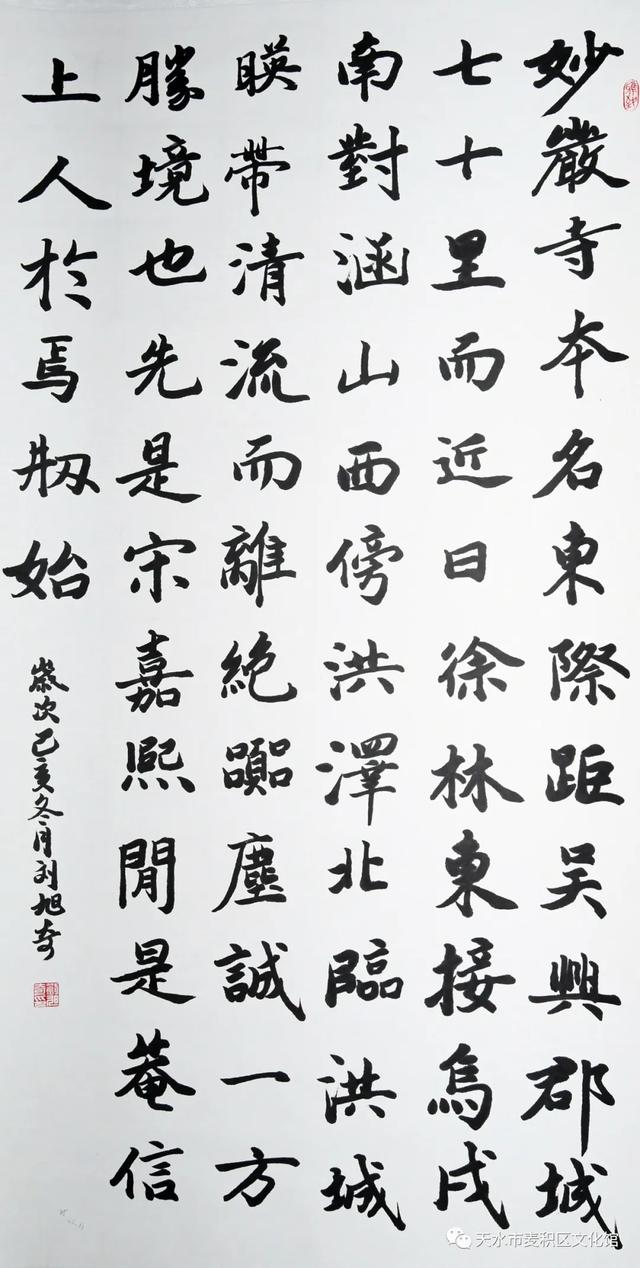 妙嚴寺本名東際距吳興郡城
七十里而近曰徐林東接烏戍
南對涵山西傍洪澤北臨洪城
暎帶清流而離絕囂塵誠一方
勝境也先是宋嘉熙閒是菴信
上人於焉剏始
歲次己亥冬月刘旭奇
天水市麦积区文化馆